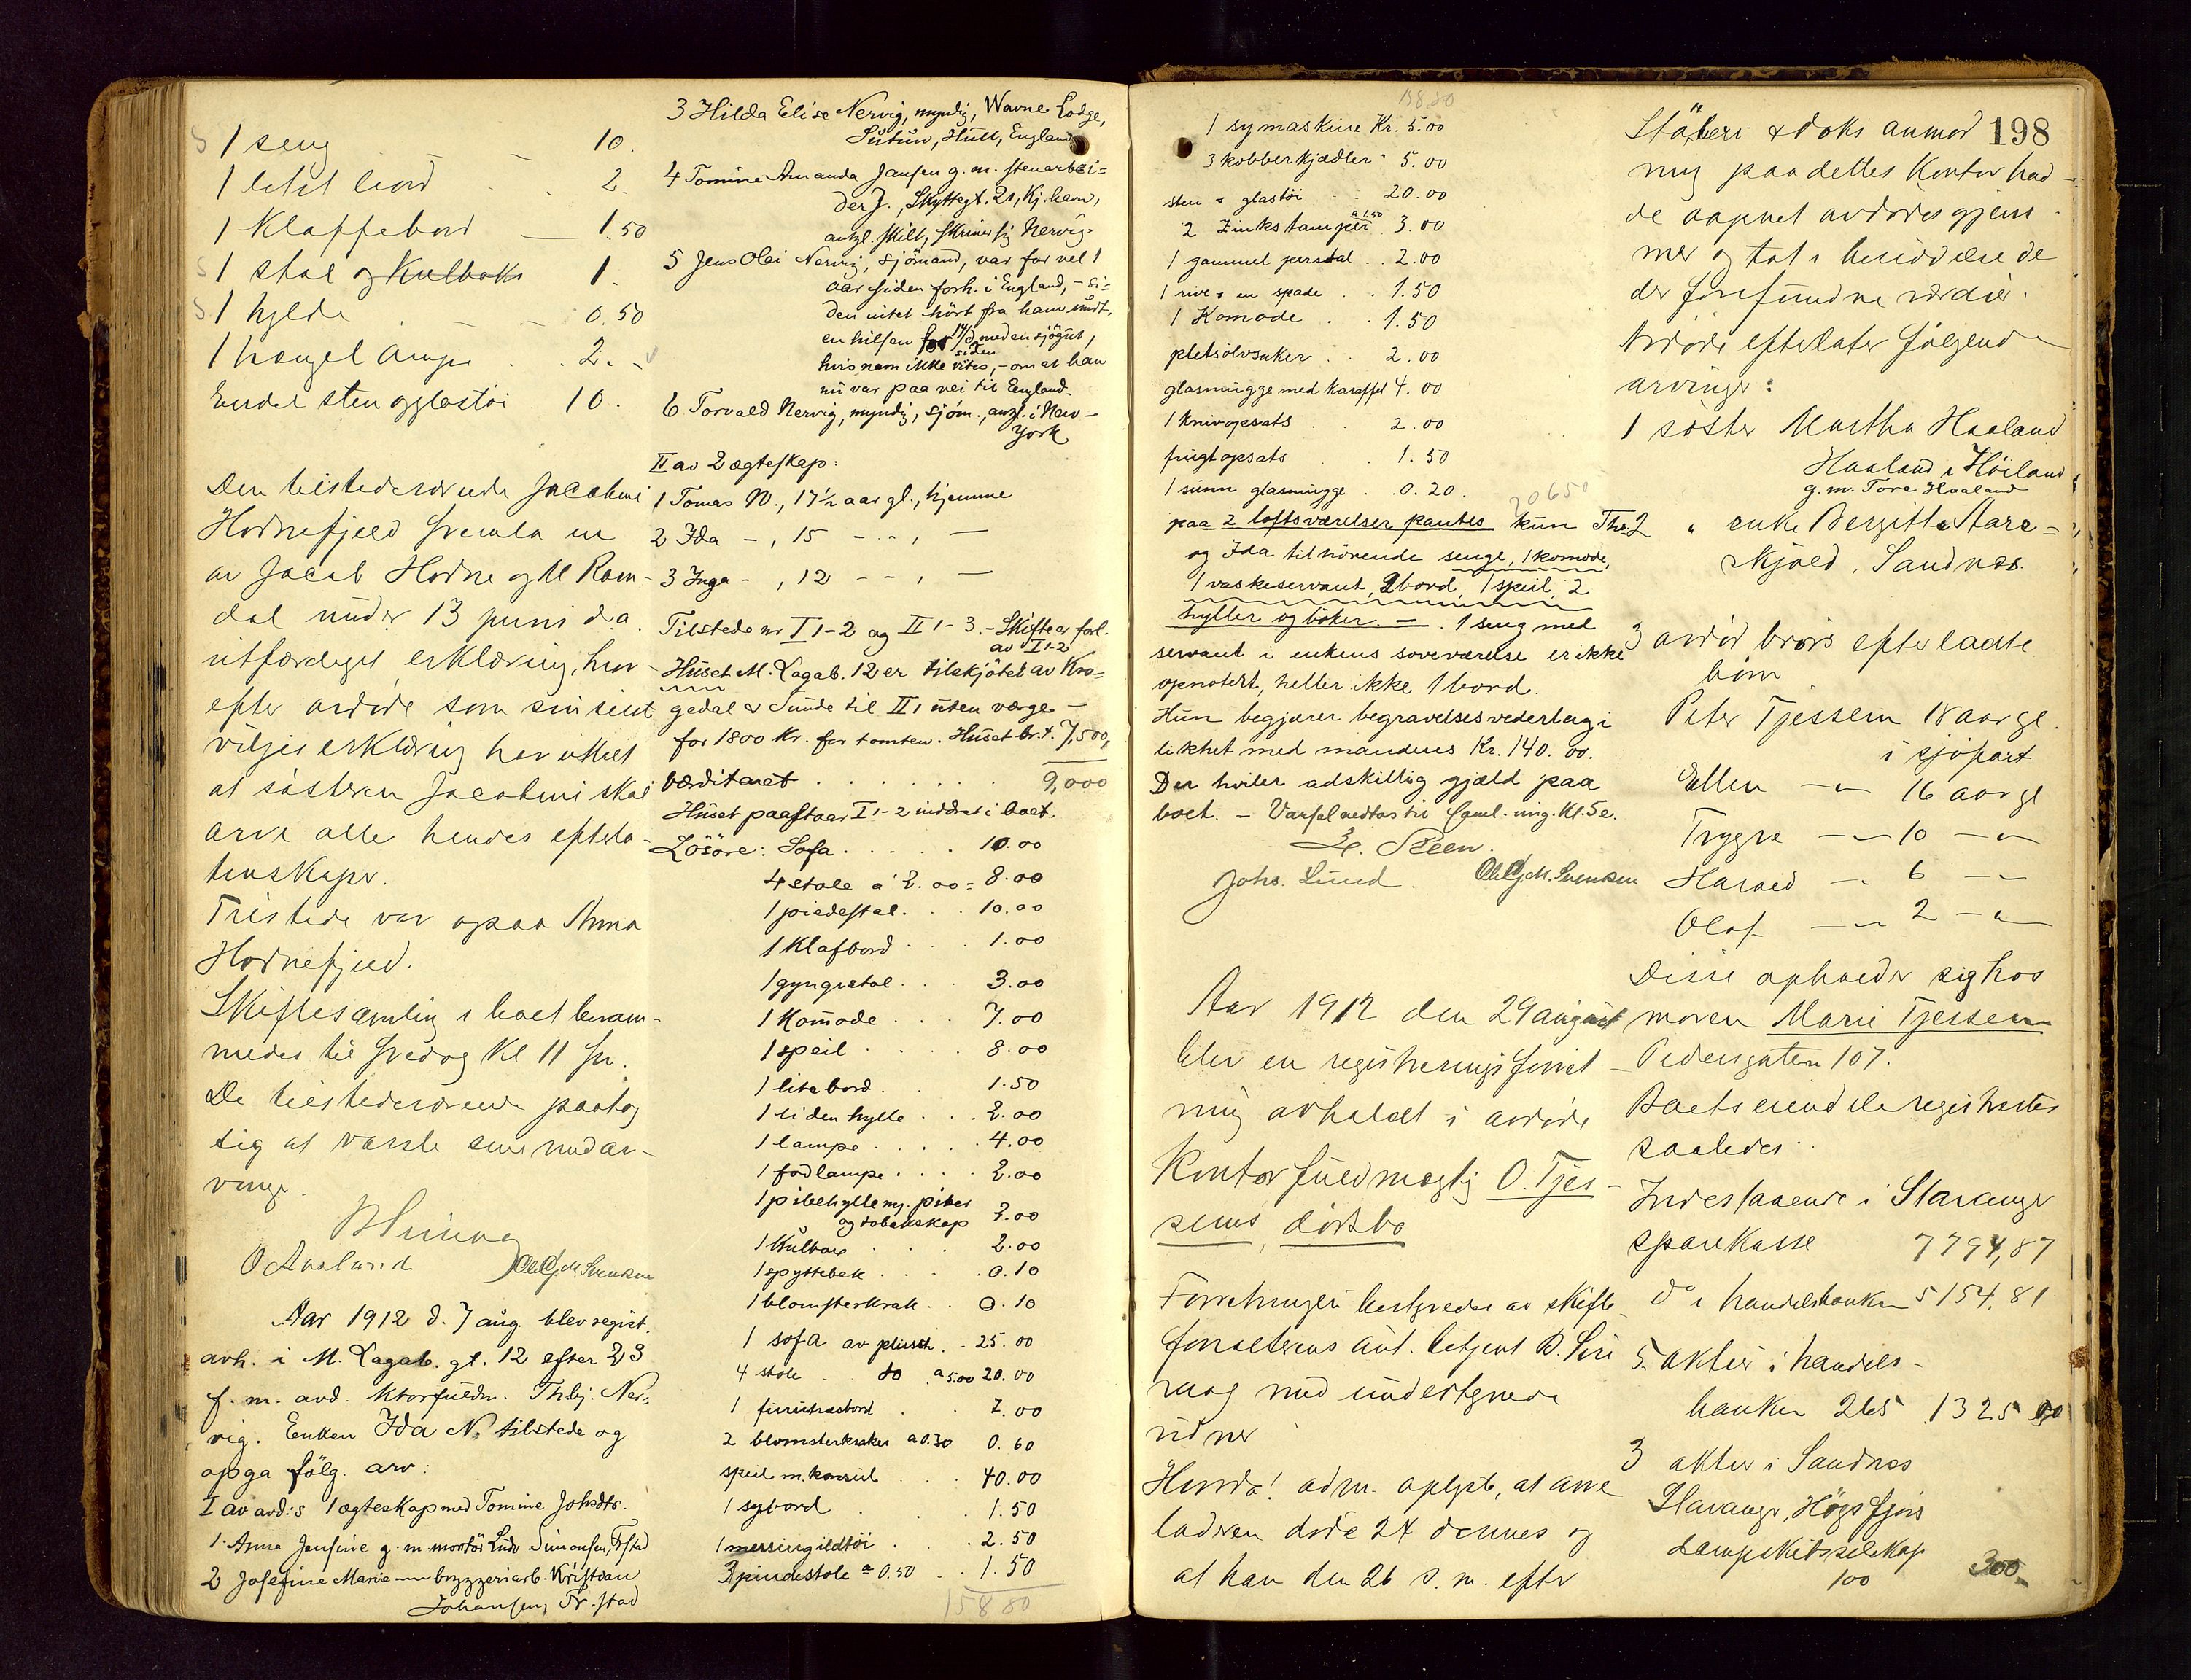 1 seng 10.
1 litet bord 2.
1 Klaffebord 1.50
1 stol og Kulboks 1.
1 hylde 0.50
1 hængelampe 2.
Endel sten og glastøi 10.
Den tilstedeværende Jacobine
Hodnefjeld fremla en
av Jacob Hodne og M Ram-
dal under 13 juni d.a.
utfærdiget erklæring, hvor-
efter avdøde som sin sidste
viljeserklæring har uttalt
at søsteren Jacobine skal
arve alle hendes efterla-
tenskaper.
Tilstede var ogsaa Anna
Hodnefjeld.
Skiftesamling i boet beram-
medes til fredag Kl 11 fm.
De tilstedeværende paatog
sig at varsle sine medar-
vinger.
O Aasland Ole G. M. Svendsen
Aar 1912 d. 7 aug. blev regist.
avh. i M. Lagab. gt. 12 efter 2/3
f. m. avd. ktorfuldm. Thbj. Ner-
vig. Enken Ida N. tilstede og
opga følg. arv:
I av avd:s 1 ægteskap med Tomine Johsdtr.
1. Anna Jensine g. m. mortör Ludv Simonsen, Frstad
2 Josefine Marie — bryggeriarb. Kristian
Johansen, Fr.stad
3 Hilda Elise Nervig, myndig, Wavne Lodge,
Sutun, Hull, England
4 Tomine Amanda Jansen g. m. stenarbei-
der J., Skyttegt. 21, Kj.havn,
antgl. skilt, skriver sig Nervig.
5 Jens Olai Nervig, sjömand, var for vel 1
aar siden forh. i England, - si-
den intet hört fra ham undt.
en hilsen for 14/d siden med en sjøgut,
hvis navn ikke vites, - om at han
nu var paa vei til England.
6 Torvald Nervig, myndig, sjøm., antgl. i New-
York
II av 2 ægteskap:
1 Tomas N., 17½ aar gl., hjemme
2 Ida - , 15 - - , —
3 Inga - , 12 - - , —
Tilstede nr I 1-2 og II 1-3. - Skifte er forl.
av I 1-2
Huset M. Lagab. 12 er tilskjötet av Kro-
gedal & Sunde til II 1 uten værge -
for 1800 kr. for tomten. Huset br.t. 7,500,
Værditaxt 9,000
Huset paastaar I 1-2 inddrat i boet.
Lösöre: Sofa 10.00
4 stole a 2.00 = 8.00
1 piedestal 10.00
1 Klafbord 1.00
1 gyngestol 3.00
1 Komode 7.00
1 speil 8.00
1 lite bord 1.50
1 liden hylle 2.00
1 lampe 4.00
1 fodlampe 2.00
1 pibehylle m. piber
og tobakskap 2.00
1 Kulbox 2.00
1 spyttebak 0.10
1 blomsterkrak 0.10
1 sofa av plusch 25.00
4 stole do a 5.00 20.00
1 furutræsbord 7.00
2 blomsterkraker a 0.30 0.60
speil m. konsol 40.00
1 sybord 1.50
1 messingildtøi 2.50
3 pindestole a 0.50 1.50
158 80
158.80
1 symaskine Kr. 5.00
3 kobberkjædler 5.00
sten & glastøi 20.00
2 Zinkstamper a 1.50 3.00
1 gammel perstal 2.00
1 rive & en spade 1.50
1 Komode 1.50
pletsølvsaker 2.00
glasmugge med Karaffel 4.00
1 Knivopsats 2.00
frugtopsats 1.50
1 sunn glasmugge 0.20.
20650
paa 2 loftsværelser pantes kun Ths
og Ida tilhörende senge, 1 komode,
1 vaskeservant, 2 bord, 1 speil, 2
hyller og böker. — . 1 seng med
servant i enkens soveværelse er ikke
opnotert, heller ikke 1 bord.
Hun begjærer begravelsesvederlag i
likhet med mandens Kr. 140.00.
Der hviler adskillig gjæld paa
boet. - Varsel vedtas til saml. ing. Kl. 5 e.
Steen.
Johs. Lund. Ole G. M. Svendsen
Aar 1912 den 29 august
blev en registreringsforret-
ning avholdt i avdøde
Kontorfuldmægtig O. Tjes-
sems dødsbo
Forretningen bestyredes av skifte-
forvalterens aut. betjent B. Sire-
vaag med undertegnede
vidner
Hvorda! adm. oplyst, at arve
laderen døde 24 dennes og
at han den 26 s. m. efter
198
Støleri & doks anmod
ning paa dettes Kontor had-
de aapnet avdødes gjem-
mer og tat i besiddelse de
der forefundne værdier.
Avdøde efterlater følgende
arvinger:
1 søster Martha Haaland
Haaland i Höiland
g. m. Tore Haaland
2 " enke Bergitte Aare-
skjold, Sandnes.
3 avdød brors efterladte
børn
Peter Tjessem 18 aar gl.
i sjøfart
Ellen — 16 aar gl
Trygve — 10 —
Harald — 6 —
Olaf — 2 —
Disse opholder sig hos
moren Marie Tjessem
Pedersgaten 107.
Boets eiendele registrertes
saaledes:
Indestaaende i Stavanger
sparekasse 7794,87
do i handelsbanken 5154,81
5 aktier i handels-
banken 265 1325 00
3 aktier i Sandnes
Stavanger, Høgsfjord
dampskibsselskap
100 300